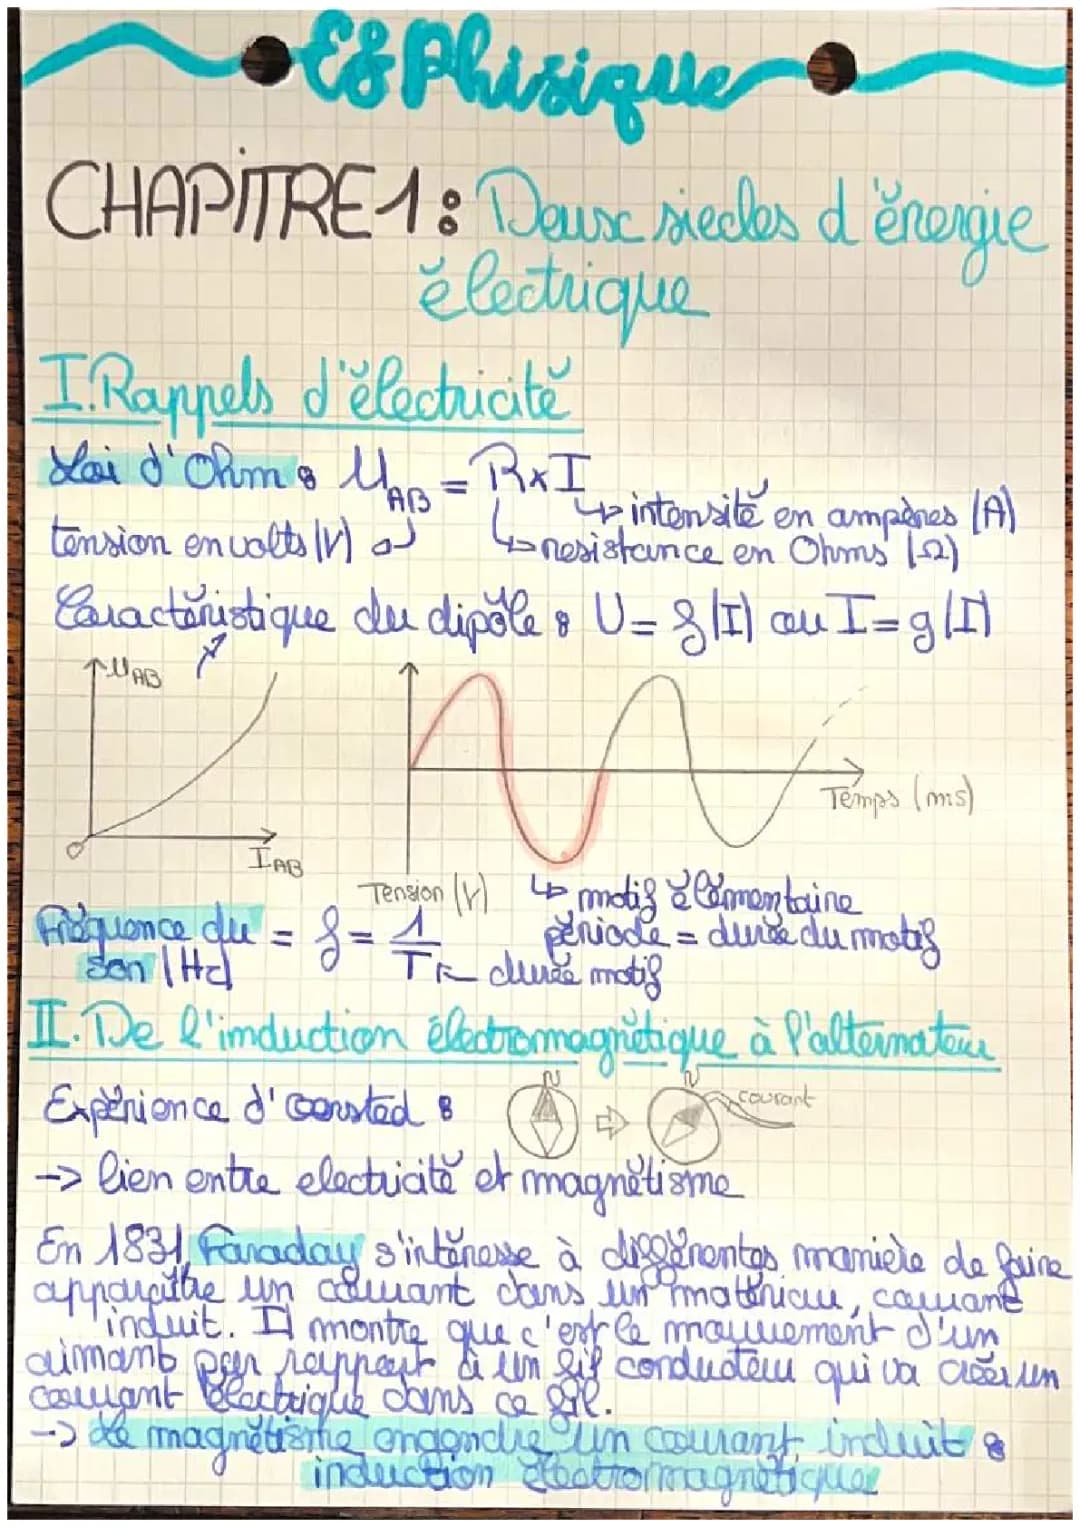 ES Phisique
CHAPITRE 1 : Deux siecles d'énergie
électrique
I. Rappels d'électricité
Loi d'Ohm : U_AB = R x I
↳ intensité en ampères (A)
tension en volts (V) ↲ ↳ resistance en Ohms (Ω)
Caractéristique du dipôle : U = f(I) ou I = g(I)
U_AB
I_AB
O
Temps (ms)
Tension (V)
↳ motif élémentaire
période = durée du motif
Fréquence du = f = 1/T ← durée motif
son (Hz)
II. De l'induction électromagnétique à l'alternateur
Expérience d'oersted :
N ⇨ N courant
-> lien entre electricité et magnétisme
En 1831, Faraday s'intéresse à différentes manière de faire
apparaître un courant dans un matériau, courant
induit. Il montre que c'est le mouvement d'un
aimant par rapport à un fil conducteur qui va créer un
courant électrique dans ce fil.
-> Le magnétisme engendre un courant induit :
induction électromagnétique